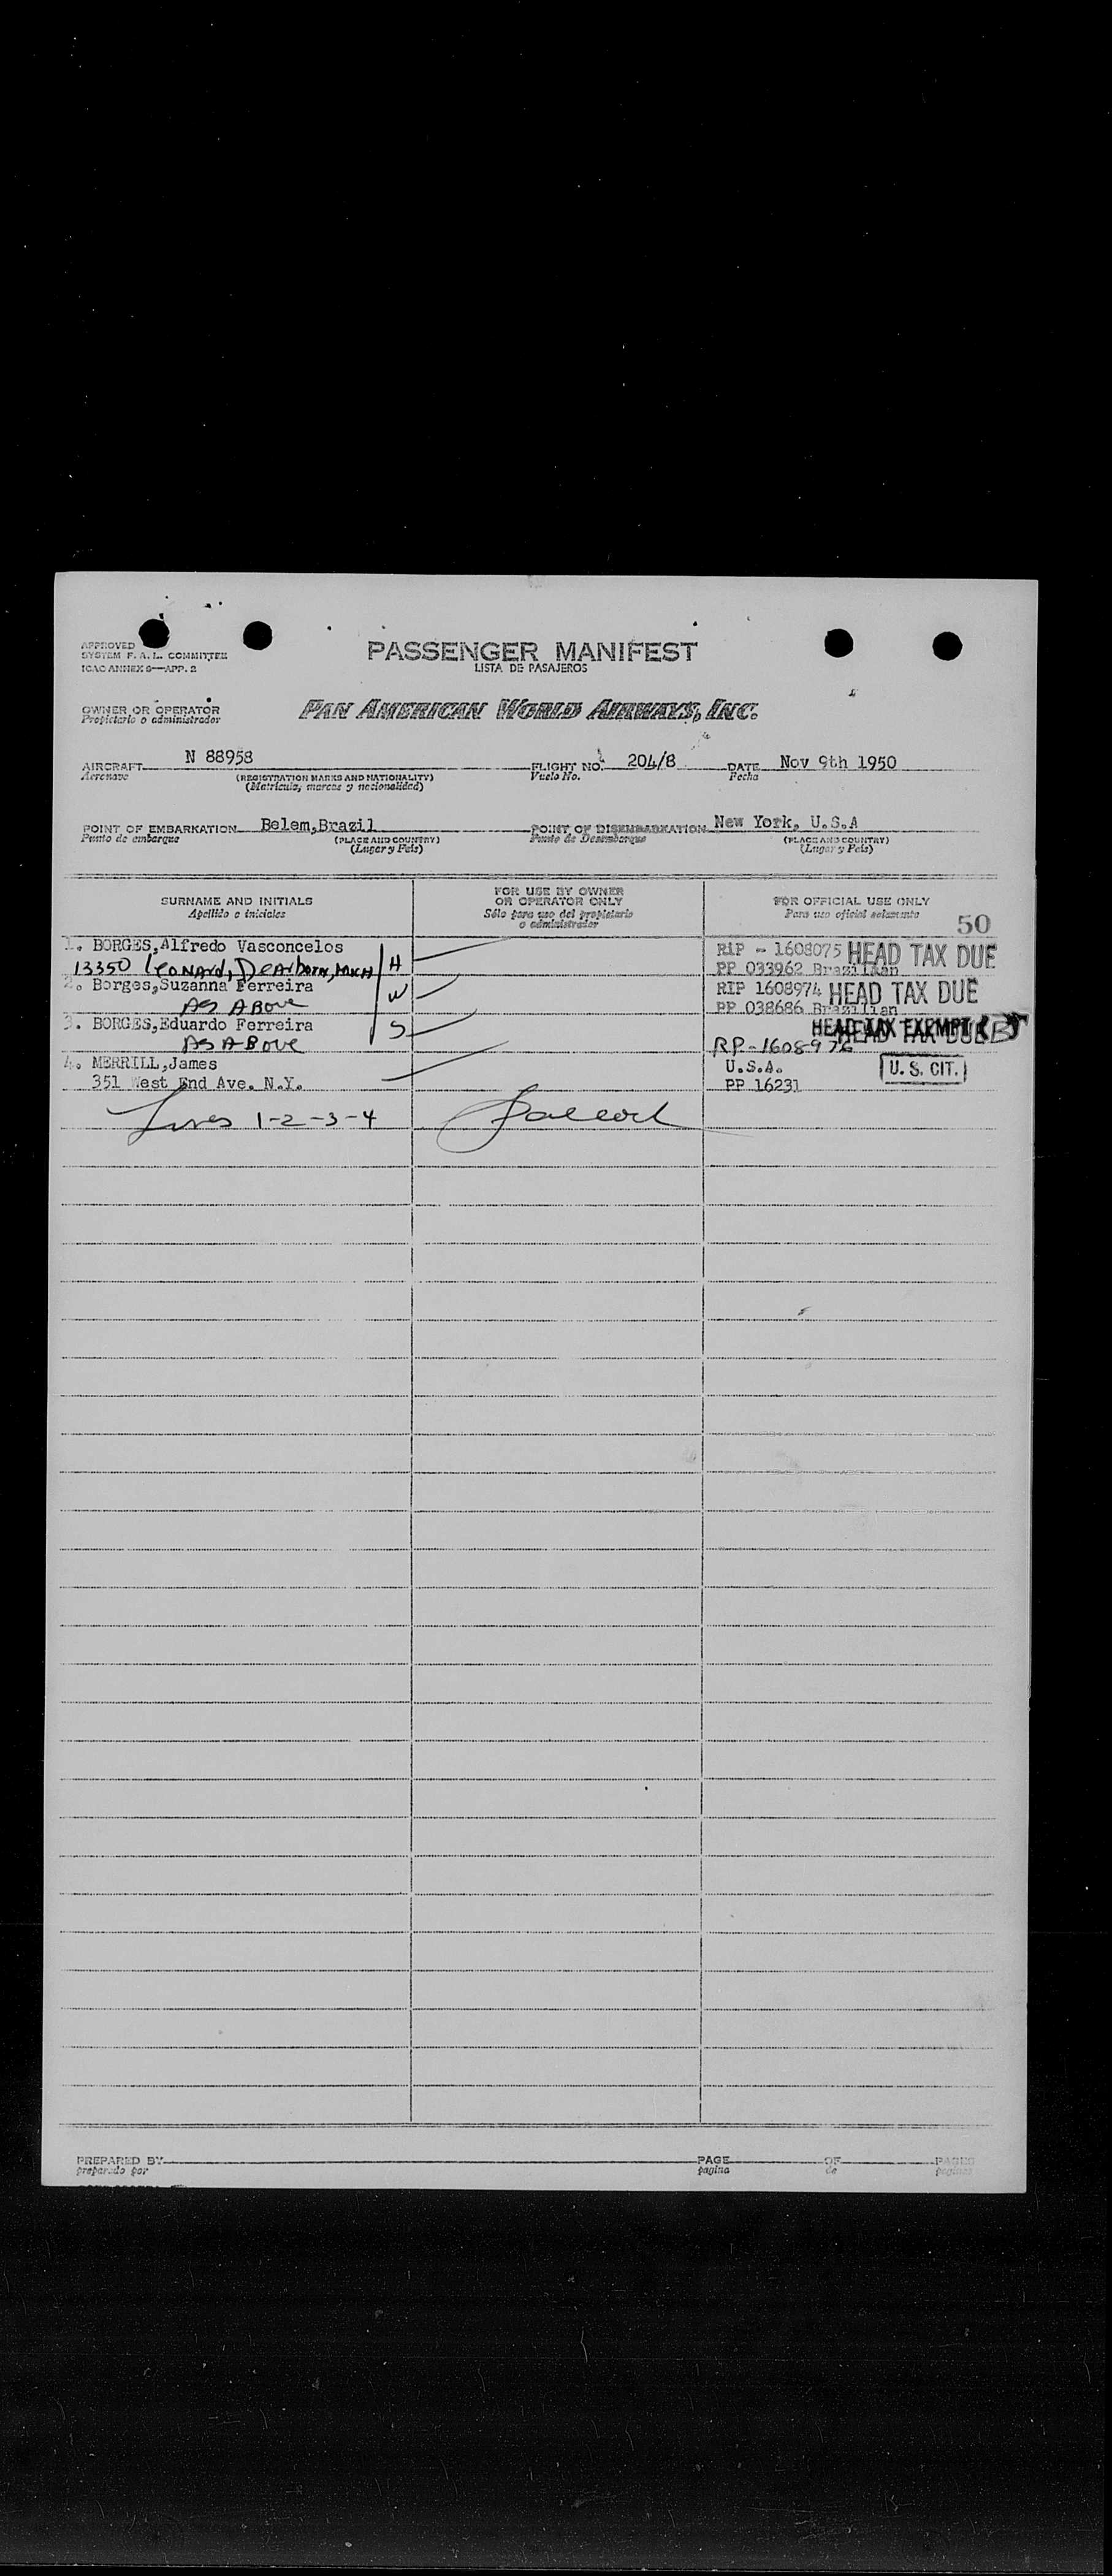 APPROVED
SYSTEM F. A. L. COMMITTEE
ICAO ANNEX 9—APP. 2
PASSENGER MANIFEST
LISTA DE PASAJEROS
OWNER OR OPERATOR
Propietario o administrador
PAN AMERICAN WORLD AIRWAYS, INC.
AIRCRAFT N 88958 FLIGHT NO. 204/8 DATE Nov 9th 1950
Aeronave (REGISTRATION MARKS AND NATIONALITY) Vuelo No. Fecha
(Matricula, marcas y nacionalidad)
POINT OF EMBARKATION Belem,Brazil POINT OF DISEMBARKATION New York, U.S.A
Punto de embarque (PLACE AND COUNTRY) Punto de Desembarque (PLACE AND COUNTRY)
(Lugar y Pais) (Lugar y Pais)
SURNAME AND INITIALS FOR USE BY OWNER OR OPERATOR ONLY FOR OFFICIAL USE ONLY
Apellido e iniciales Sólo para uso del propietario o administrador Para uso oficial solamente
50
1. BORGES,Alfredo Vasconcelos RIP - 1608075 HEAD TAX DUE
13350 Leonard, Dearborn, Mich H PP 033962 Brazilian
2. Borges,Suzanna Ferreira RIP 1608974 HEAD TAX DUE
AS ABOVE W PP 038686 Brazilian
3. BORGES,Eduardo Ferreira S HEAD TAX EXEMPT HEAD TAX DUE
AS ABOVE RP-1608976
4. MERRILL,James U.S.A. U. S. CIT.
351 West End Ave. N.Y. PP 16231
Lines 1-2-3-4
PREPARED BY PAGE OF PAGES
preparado por pagina de paginas